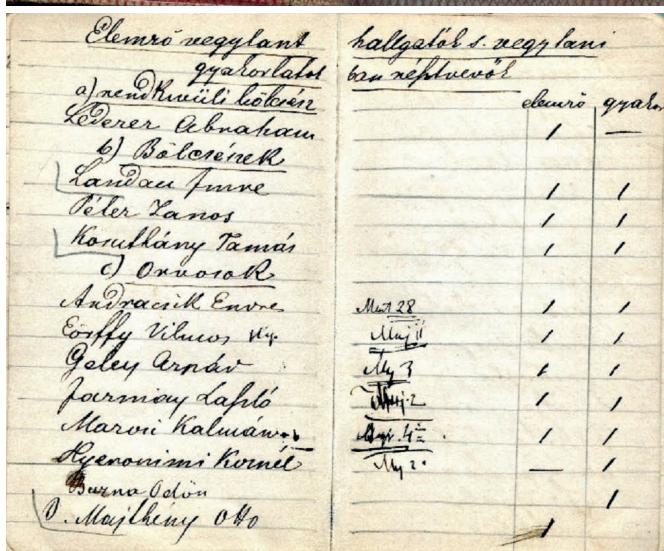 Elemző vegytant hallgatók s. vegytani
gyakorlatokban résztvevők
elemző gyakor
a) rendkivüli bölcsész
Lederer Abraham / —
b) Bölcsészek
Landau Imre / /
Péter Janos / /
Kosuthány Tamás / /
c) Orvosok
Andracsik Endre 28 / /
Eörffy Vilmos / /
Geley Arpád Maj 3 / /
Jarmay Laszló Maj. 2 / /
Marosi Kalman / /
Hyeronimi Kornél Maj 2. — /
Barna Ödön /
Majthény Otto /